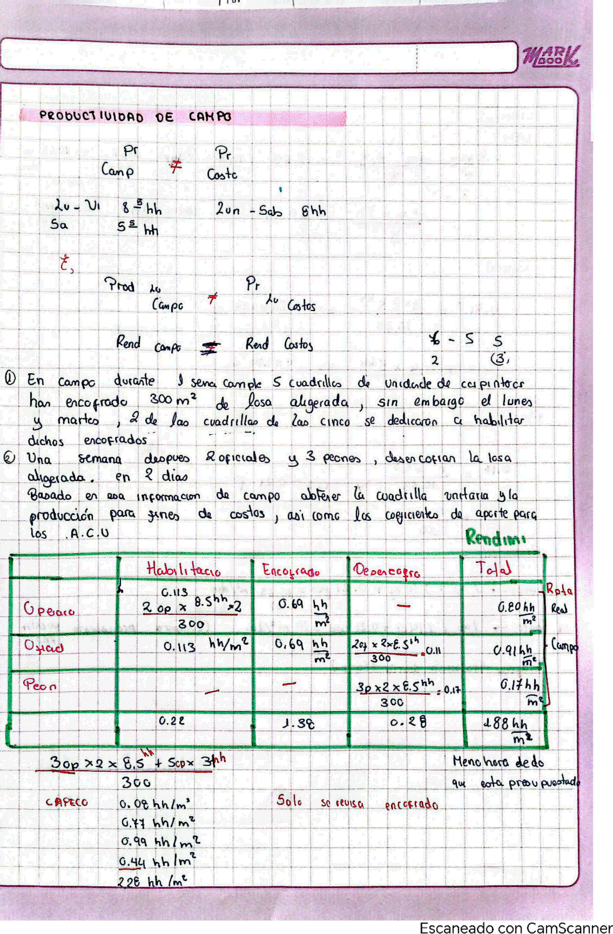 MARK BOOK
PRODUCTIVIDAD DE CAMPO
Pr Camp ≠ Pr Costo
Lu - Vi 8.5 hh Lun - Sab 8hh
Sa 5.5 hh
Prod Campo ≠ Pr Costos
Rend campo = Rend Costos
- 5 5
2 3
① En campo durante 1 semana 5 cuadrillas de unidade de carpinteros
han encofrado 300 m² de losa aligerada, sin embargo el lunes
y martes, 2 de las cuadrillas de las cinco se dedicaron a habilitar
dichos encofrados
② Una semana despues 2 oficiales y 3 peones, desencofran la losa
aligerada. en 2 dias
Basado en esa informacion de campo obtener la cuadrilla unitaria y la
producción para fines de costos, asi como los coeficientes de aporte para
los .A.C.U
Rendimi
Habilitacio Encofrado Desencofra Total
Operario 0.113 2 op x 8.5hh x 2 / 300 0.69 hh/m² — 0.80 hh/m²
Oficial 0.113 hh/m² 0.69 hh/m² 2of x 2 x 8.5hh / 300 = 0.11 0.91 hh/m²
Peon — — 3p x 2 x 8.5hh / 300 = 0.17 0.17 hh/m²
0.22 1.38 0.28 1.88 hh/m²
Real
Campo
3 op x 2 x 8.5hh + 5op x 3 hh / 300
Meno hora de do
que esta presupuestado
CAPECO 0.08 hh/m² Solo se revisa encofrado
0.77 hh/m²
0.99 hh/m²
0.44 hh/m²
2.28 hh/m²
Escaneado con CamScanner